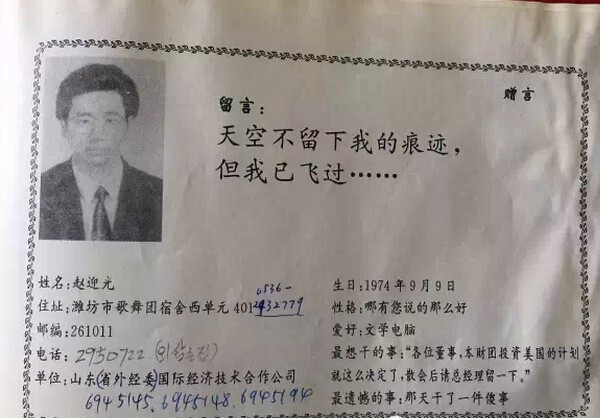 赠言
留言：
天空不留下我的痕迹，
但我已飞过……
姓名:赵迎元
住址:潍坊市歌舞团宿舍西单元 401
0536-
2432779
邮编:261011
电话: 2950722
单位:山东(省外经委)国际经济技术合作公司
6945145. 6945148. 6945194
生日:1974 年 9 月 9 日
性格:哪有您说的那么好
爱好:文学电脑
最想干的事:“各位董事，本财团投资美国的计划
就这么决定了，散会后请总经理留一下。”
最遗憾的事:那天干了一件傻事